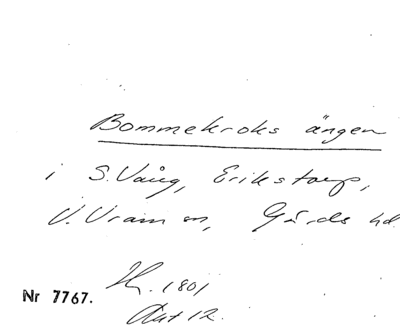 Bommekroks ängen
i S. Vång, Erikstorp,
V. Vram sn, Gärds hd
Nr 7767.
1801
Akt 12.